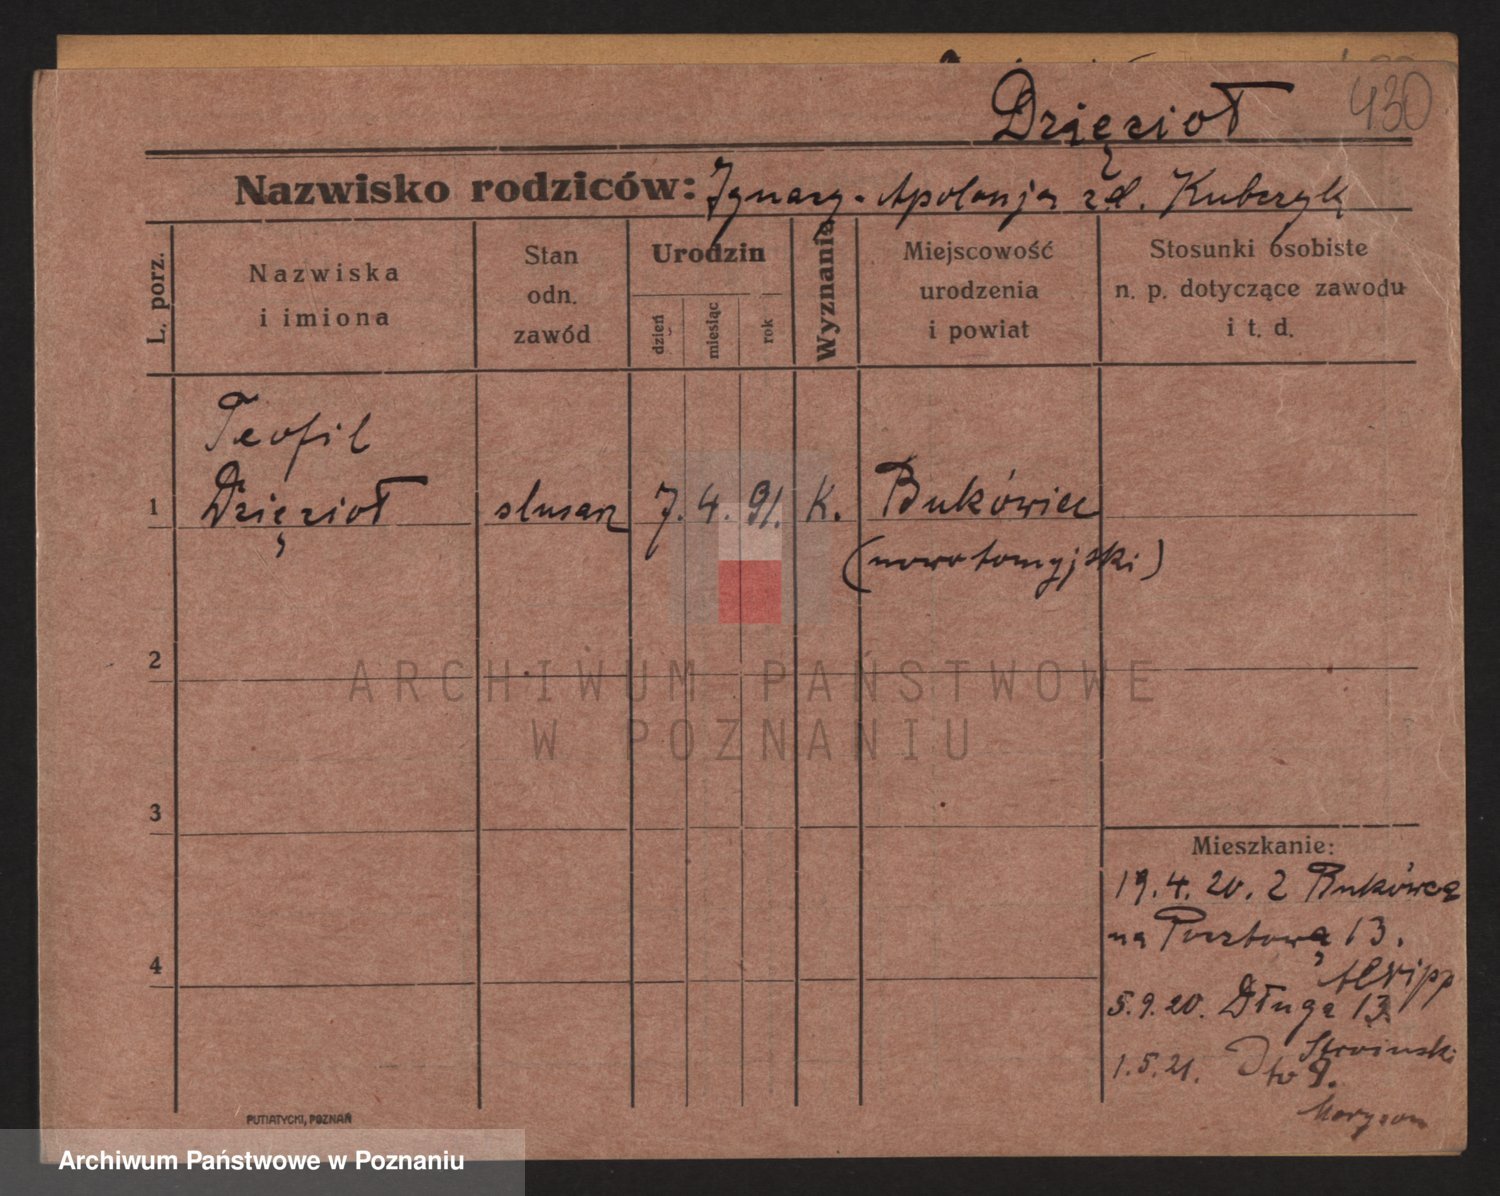 Dzięzioł 430
Nazwisko rodziców: Ignacy - Apolonja zd. Kubczyk
L. porz.
Nazwiska
i imiona
Stan
odn.
zawód
Urodzin
dzień
miesiąc
rok
Wyznanie
Miejscowość
urodzenia
i powiat
Stosunki osobiste
n. p. dotyczące zawodu
i t. d.
Teofil
1 Dzięzioł ślusarz 7. 4. 91. K. Bukówiec
(nowotomyjski)
2
3
4
Mieszkanie:
19.4.20. z Bukówca
na Pocztową 13.
5.9.20. Długa 13
Stroinski
1.5.21. Dto 9.
PUTIATYCKI, POZNAŃ
ARCHIWUM PAŃSTWOWE
W POZNANIU
Archiwum Państwowe w Poznaniu